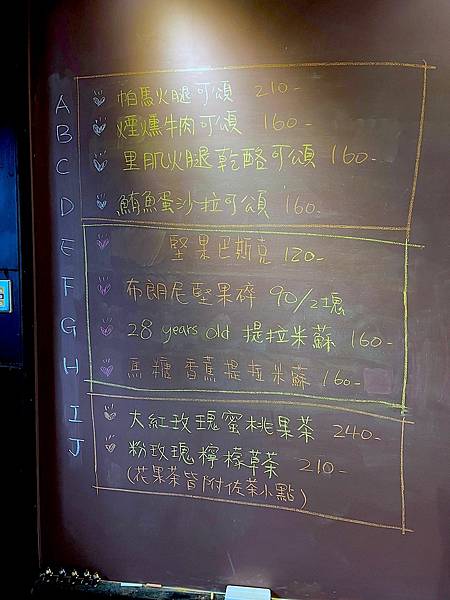 A 帕馬火腿可頌 210-
B 煙燻牛肉可頌 160-
C 里肌火腿乾酪可頌 160-
D 鮪魚蛋沙拉可頌 160-
E 堅果巴斯克 120-
F 布朗尼堅果碎 90/2塊
G 28 years old 提拉米蘇 160-
H 焦糖香蕉提拉米蘇 160-
I 大紅玫瑰蜜桃果茶 240-
J 粉玫瑰檸檬草茶 210-
(花果茶皆附佐茶小點)